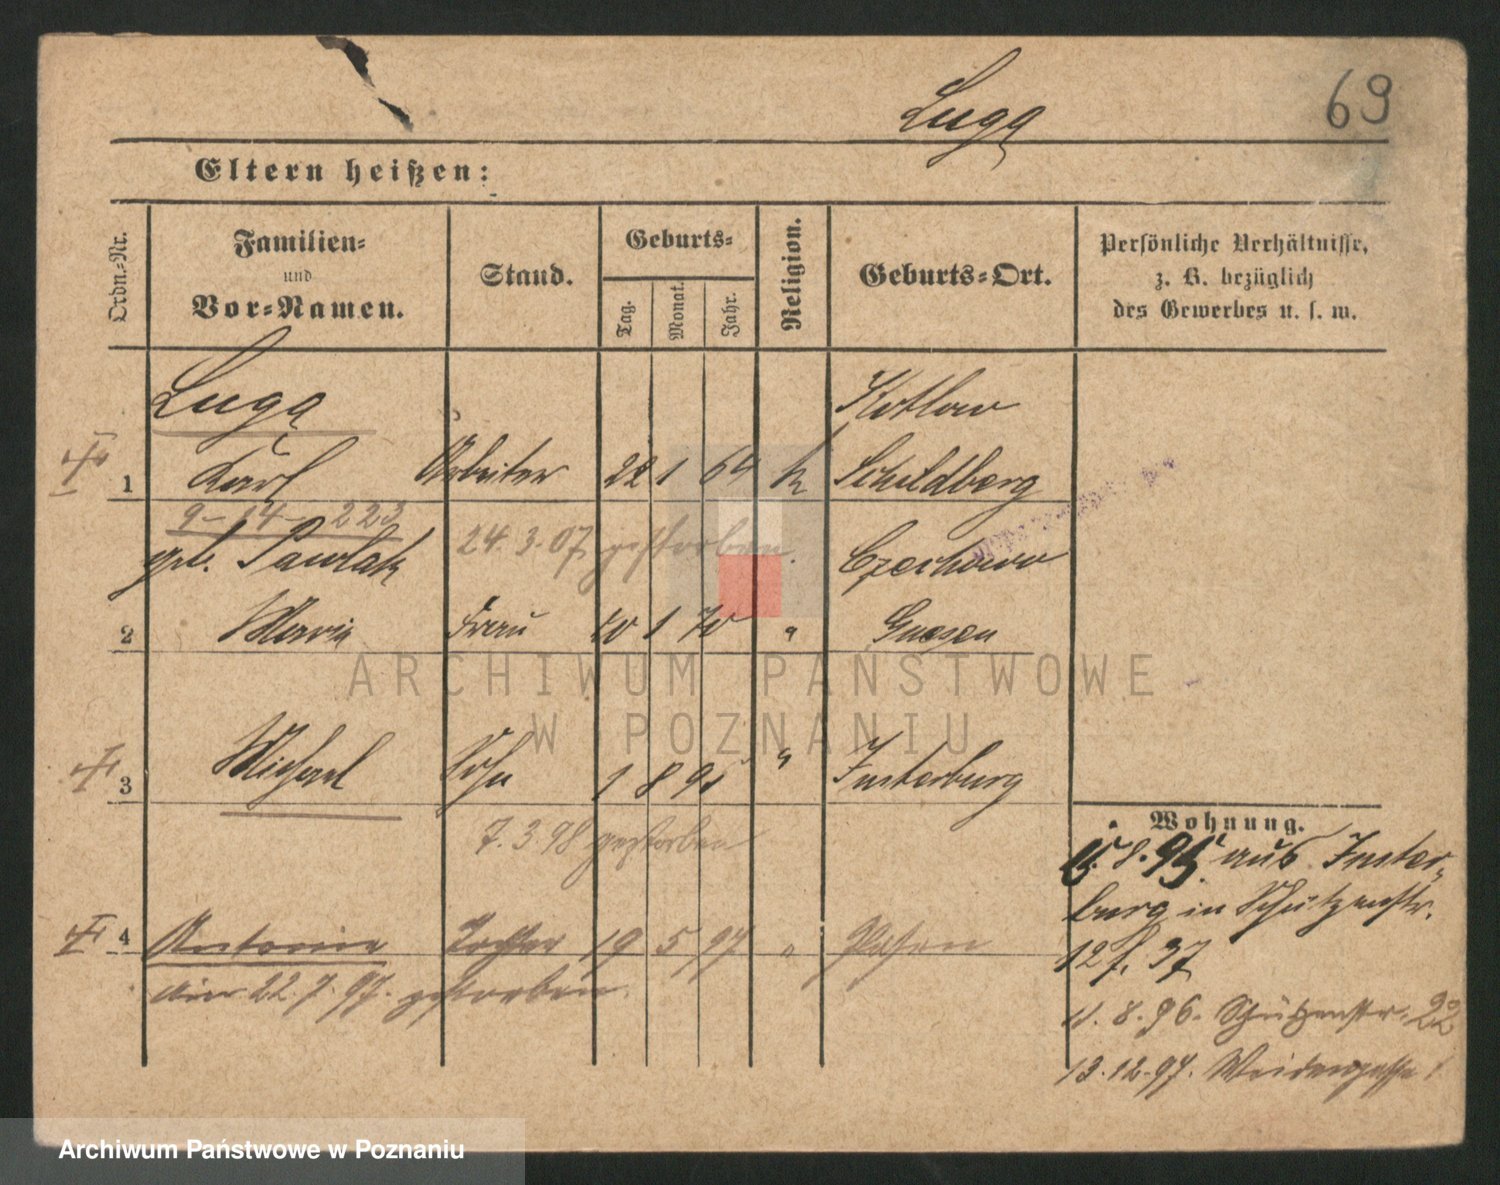 Luga
69
Eltern heißen:
Ordn.-Nr.
Familien-
und
Vor-Namen.
Stand.
Geburts-
Tag.
Monat.
Jahr.
Religion.
Geburts-Ort.
Persönliche Verhältnisse,
z. B. bezüglich
des Gewerbes u. s. w.
Luga
Kotlow
1 Karl Arbeiter 22 1 64 k Schildberg
9-14-223
geb. Pawlak 24.3.07 gestorben Czechowo
2 Maria Frau 1 70 " Gnesen
3 Michael Sohn 1 8 95 " Insterburg
7.3.98 gestorben
4 Antonie Tochter 19 5 97 " Posen
22.7.97. gestorben.
Wohnung.
15.8.95. aus Inster-
burg in Schützenstr.
12 f. 37
11.8.96. Schützenstr. 22
13.12.97. Weidengasse 1
ARCHIWUM PAŃSTWOWE
W POZNANIU
Archiwum Państwowe w Poznaniu